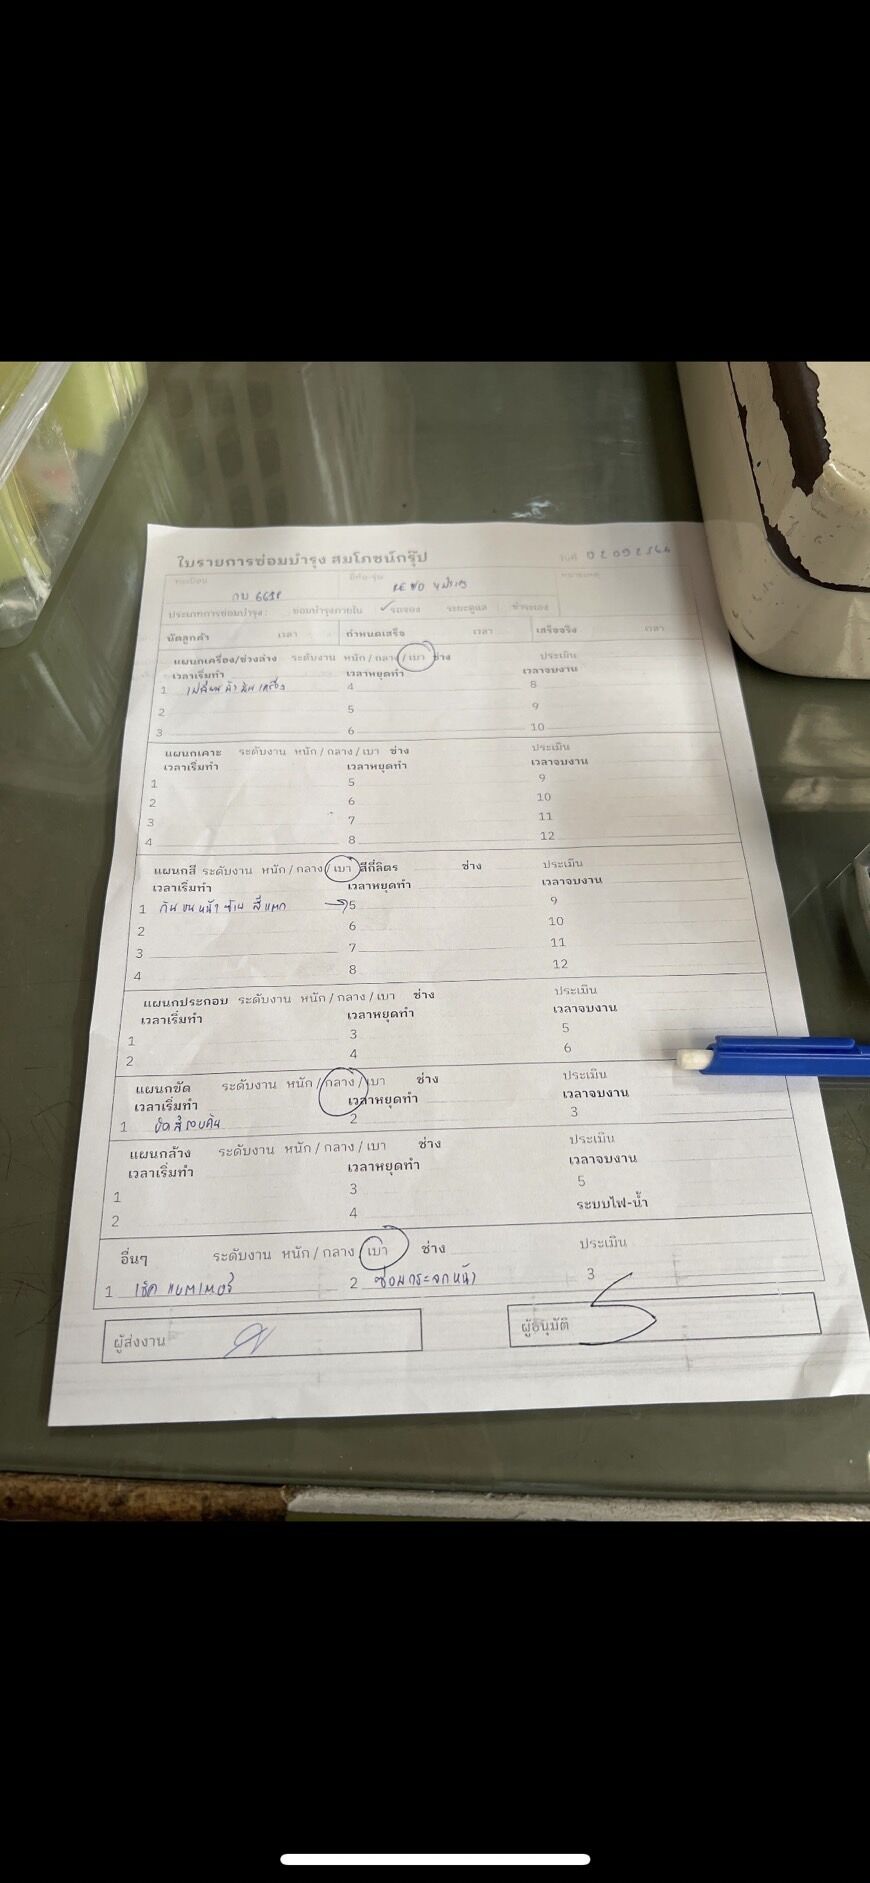 ใบรายการซ่อมบำรุง สมโภชน์กรุ๊ป วันที่ 02 09 2564
ทะเบียน ยี่ห้อ-รุ่น หมายเหตุ
กบ
ประเภทการซ่อมบำรุง : ซ่อมบำรุงภายใน ✓รถจอง ระยะดูแล
นัดลูกค้า เวลา กำหนดเสร็จ เวลา เสร็จจริง เวลา
แผนกเครื่อง/ช่วงล่าง ระดับงาน หนัก / กลาง / เบา ช่าง ประเมิน
เวลาเริ่มทำ เวลาหยุดทำ เวลาจบงาน
1 เปลี่ยนน้ำมันเครื่อง 4 8
2 5 9
3 6 10
แผนกเคาะ ระดับงาน หนัก / กลาง / เบา ช่าง ประเมิน
เวลาเริ่มทำ เวลาหยุดทำ เวลาจบงาน
1 5 9
2 6 10
3 7 11
4 8 12
แผนกสี ระดับงาน หนัก / กลาง / เบา สีกี่ลิตร ช่าง ประเมิน
เวลาเริ่มทำ เวลาหยุดทำ เวลาจบงาน
1 กันชนหน้าซ้าย สีแตก → 5 9
2 6 10
3 7 11
4 8 12
แผนกประกอบ ระดับงาน หนัก / กลาง / เบา ช่าง ประเมิน
เวลาเริ่มทำ เวลาหยุดทำ เวลาจบงาน
1 3 5
2 4 6
แผนกขัด ระดับงาน หนัก / กลาง / เบา ช่าง ประเมิน
เวลาเริ่มทำ เวลาหยุดทำ เวลาจบงาน
1 ขัดสีรอบคัน 2 3
แผนกล้าง ระดับงาน หนัก / กลาง / เบา ช่าง ประเมิน
เวลาเริ่มทำ เวลาหยุดทำ เวลาจบงาน
1 3 5
2 4 ระบบไฟ-น้ำ
อื่นๆ ระดับงาน หนัก / กลาง / เบา ช่าง ประเมิน
1 เช็คแบตเตอรี่ 2 ซ่อมกระจกหน้า 3
ผู้ส่งงาน ผู้อนุมัติ